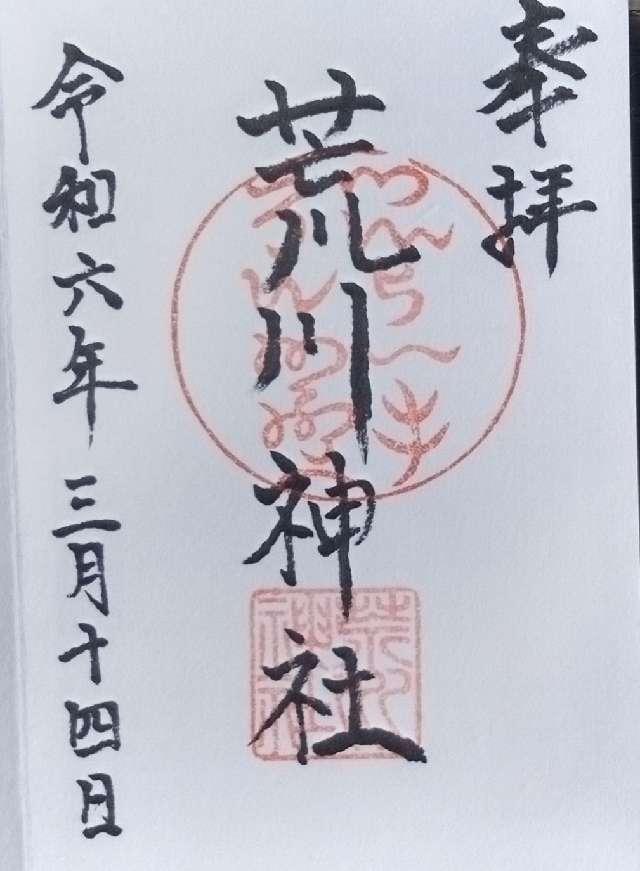 奉拝
荒川神社
令和六年三月十四日